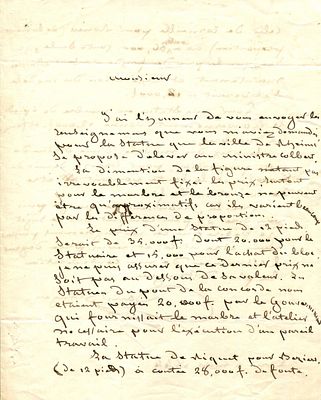 Monsieur
J'ai l'honneur de vous envoyer les
renseignemens que vous m'aviez demandés
pour la Statue que la ville de Rheims
se propose d'élever au ministre Colbert.
La dimention de la figure n'étant pas
irrevocablement fixée les prix, surtout
pour le marbre et le bronze ne peuvent
être qu'approximatifs car ils varient beaucoup
par les differences de proportion.
Le prix d'une Statue de 12 pieds
serait de 35,000f. Dont 20,000 pour le
Statuaire et 15,000 pour l'achat du bloc
je ne puis assurer que ce dernier prix ne
soit pas au dessous de sa valeur. Les
Statues du pont de la concorde nous
étaient payées 20,000f. par le Gouvernement
qui fournissait le marbre et l'atelier
necessaire pour l'exécution d'un pareil
travail.
La Statue de Riquet pour Beziers
(de 12 pieds) a coutée 28,000f. de fonte.